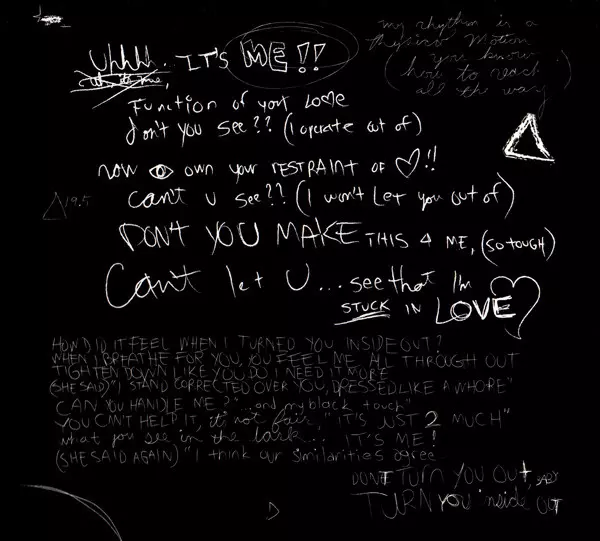 my rhythm is a
physical motion
you know
(how to reach
all the way)
Uhhhh. IT'S ME!!
Uh, it's me,
Function of your Love
don't you see?? (I operate out of)
now 👁 own your RESTRAINT OF ♡!!
can't u see?? (I won't Let you out of)
△ 19.5
DON'T YOU MAKE THIS 4 ME, (SO TOUGH)
Can't let U... see that I'm
STUCK IN LOVE
HOW DID IT FEEL WHEN I TURNED YOU INSIDE OUT?
WHEN I BREATHE FOR YOU, YOU FEEL ME ALL THROUGH OUT
TIGHTEN DOWN LIKE YOU DO I NEED IT MORE
(SHE SAID) "I STAND CORRECTED OVER "YOU, DRESSED LIKE A WHORE"
CAN YOU HANDLE ME?"...and my black touch"
YOU CAN'T HELP IT, it's not fair, "IT'S JUST 2 MUCH"
what you see in the dark... IT'S ME!
(SHE SAID AGAIN) "I think our similarities agree
DON'T TURN YOU OUT, BABY
TURN YOU inside OUT